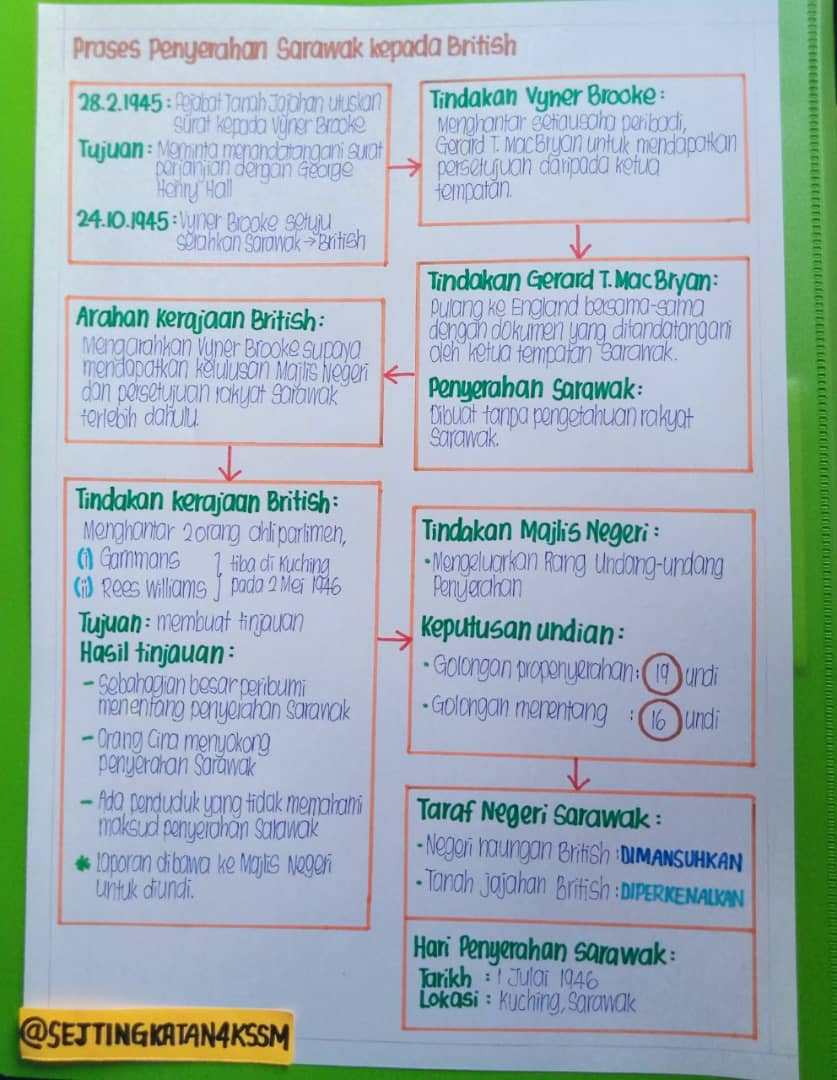 Proses Penyerahan Sarawak kepada British
28.2.1945 : Pejabat Tanah Jajahan utuskan
surat kepada Vyner Brooke
Tujuan : Meminta menandatangani surat
perjanjian dengan George
Henry Hall
24.10.1945 : Vyner Brooke setuju
serahkan Sarawak → British
Tindakan Vyner Brooke :
Menghantar setiausaha peribadi,
Gerard T. MacBryan untuk mendapatkan
persetujuan daripada ketua
tempatan.
Tindakan Gerard T. MacBryan :
Pulang ke England bersama-sama
dengan dokumen yang ditandatangani
oleh ketua tempatan Sarawak.
Penyerahan Sarawak :
Dibuat tanpa pengetahuan rakyat
Sarawak.
Arahan kerajaan British :
Mengarahkan Vyner Brooke supaya
mendapatkan kelulusan Majlis Negeri
dan persetujuan rakyat Sarawak
terlebih dahulu.
Tindakan kerajaan British :
Menghantar 2 orang ahli parlimen,
(i) Gammans
(ii) Rees Williams
tiba di Kuching
pada 2 Mei 1946
Tujuan : membuat tinjauan
Hasil tinjauan :
- Sebahagian besar peribumi
menentang penyerahan Sarawak
- Orang Cina menyokong
penyerahan Sarawak
- Ada penduduk yang tidak memahami
maksud penyerahan Sarawak
* laporan dibawa ke Majlis Negeri
untuk diundi.
Tindakan Majlis Negeri :
• Mengeluarkan Rang Undang-undang
Penyerahan
Keputusan undian :
• Golongan propenyerahan : 19 undi
• Golongan menentang : 16 undi
Taraf Negeri Sarawak :
• Negeri naungan British : DIMANSUHKAN
• Tanah jajahan British : DIPERKENALKAN
Hari Penyerahan Sarawak :
Tarikh : 1 Julai 1946
Lokasi : Kuching, Sarawak
@SEJTINGKATAN4KSSM